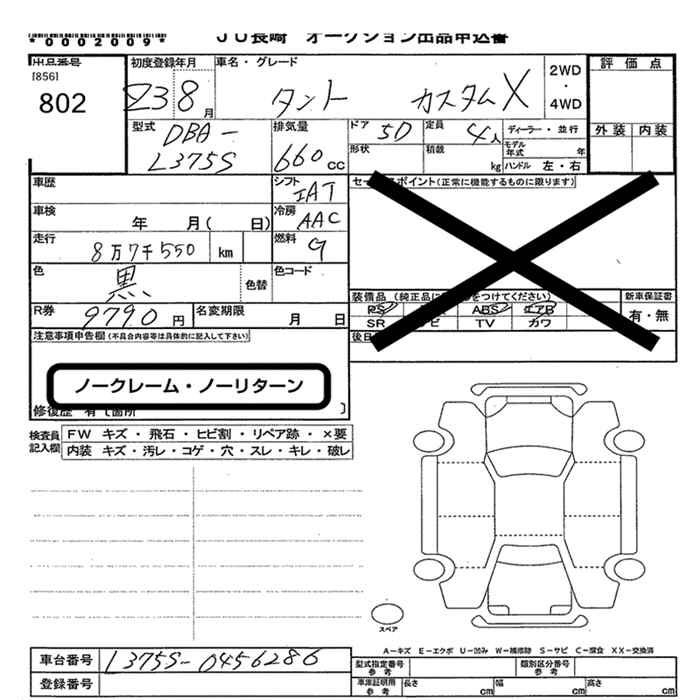 *0002009* JU長崎 オークション出品申込書
出品番号
[856]
802
初度登録年月 238月
車名・グレード タント カスタムX
2WD
・
4WD
評価点
外装 内装
型式 DBA-
L375S
排気量
660cc
ドア 5D
定員 4人
ディーラー・並行
形状
積載 kg
モデル年式 年
ハンドル 左・右
車歴
シフト IAT
セー ポイント(正常に機能するものに限ります)
車検 年 月( 日)
冷房 AAC
走行 8万7千550 km
燃料 G
色 黒
色替
色コード
装備品(純正品に をつけてください)
新車保証書
有・無
PS ABS エアB
SR ビ TV カワ
R券 9790円
名変期限 月 日
注意事項申告欄(不具合内容等は具体的に記入して下さい)
後日
ノークレーム・ノーリターン
修復歴 有〔箇所 〕
検査員
記入欄
FW キズ・飛石・ヒビ割・リペア跡・×要
内装 キズ・汚レ・コゲ・穴・スレ・キレ・破レ
スペア
A-キズ E-エクボ U-凹み W-補修跡 S-サビ C-腐食 XX-交換済
車台番号 L375S-0456286
登録番号
型式指定番号
参考
類別区分番号
参考
車庫証明用
参考
長さ cm 幅 cm 高さ cm